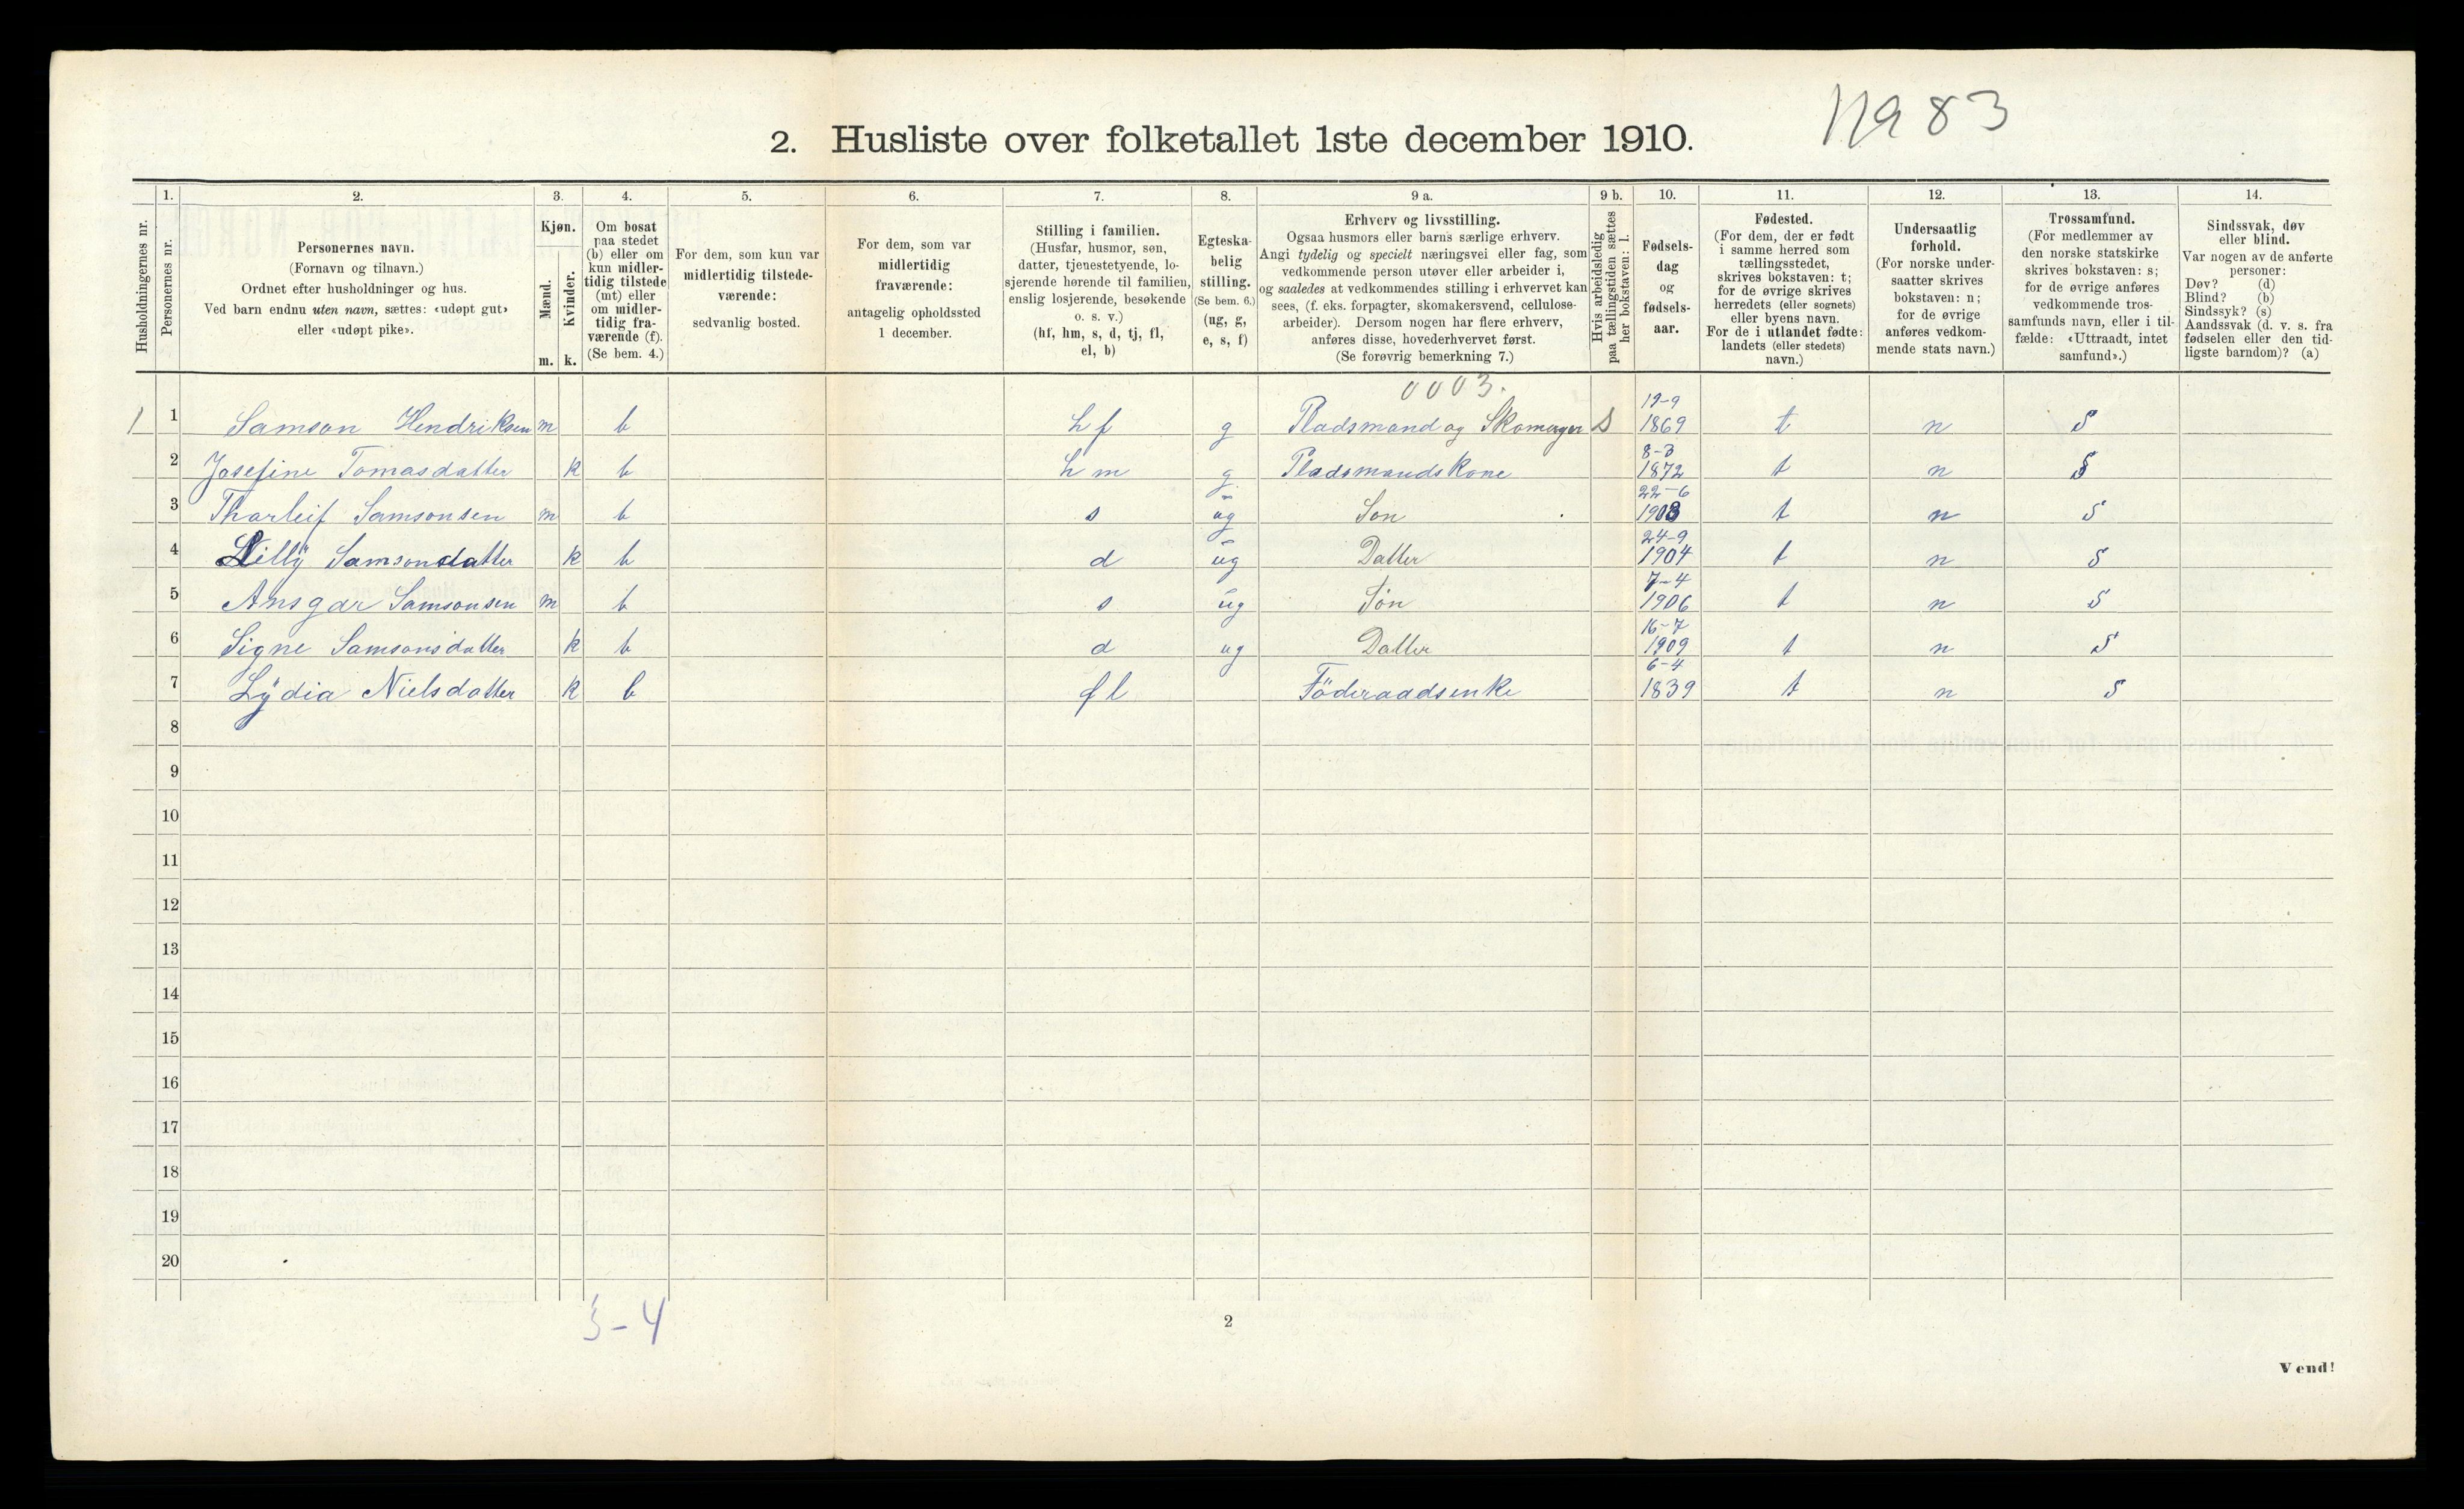 Na 83
2. Husliste over folketallet 1ste december 1910.
Husholdningernes nr.
1.
Personernes nr.
2.
Personernes navn.
(Fornavn og tilnavn.)
Ordnet efter husholdninger og hus.
Ved barn endnu uten navn, sættes: «udøpt gut»
eller «udøpt pike».
3.
Kjøn.
Mænd.
Kvinder.
m. k.
4.
Om bosat
paa stedet
(b) eller om
kun midler-
tidig tilstede
(mt) eller
om midler-
tidig fra-
værende (f).
(Se bem. 4.)
5.
For dem, som kun var
midlertidig tilstede-
værende:
sedvanlig bosted.
6.
For dem, som var
midlertidig
fraværende:
antagelig opholdssted
1 december.
7.
Stilling i familien.
(Husfar, husmor, søn,
datter, tjenestetyende, lo-
sjerende hørende til familien,
enslig losjerende, besøkende
o. s. v.)
(hf, hm, s, d, tj, fl,
el, b)
8.
Egteska-
belig
stilling.
(Se bem. 6.)
(ug, g,
e, s, f)
9 a.
Erhverv og livsstilling.
Ogsaa husmors eller barns særlige erhverv.
Angi tydelig og specielt næringsvei eller fag, som
vedkommende person utøver eller arbeider i,
og saaledes at vedkommendes stilling i erhvervet kan
sees, (f. eks. forpagter, skomakersvend, cellulose-
arbeider). Dersom nogen har flere erhverv,
anføres disse, hovederhvervet først.
(Se forøvrig bemerkning 7.)
9 b.
Hvis arbeidsledig
paa tællingstiden sættes
her bokstaven: l.
10.
Fødsels-
dag
og
fødsels-
aar.
11.
Fødested.
(For dem, der er født
i samme herred som
tællingsstedet,
skrives bokstaven: t;
for de øvrige skrives
herredets (eller sognets)
eller byens navn.
For de i utlandet fødte:
landets (eller stedets)
navn.)
12.
Undersaatlig
forhold.
(For norske under-
saatter skrives
bokstaven: n;
for de øvrige
anføres vedkom-
mende stats navn.)
13.
Trossamfund.
(For medlemmer av
den norske statskirke
skrives bokstaven: s;
for de øvrige anføres
vedkommende tros-
samfunds navn, eller i til-
fælde: «Uttraadt, intet
samfund».)
14.
Sindssvak, døv
eller blind.
Var nogen av de anførte
personer:
Døv? (d)
Blind? (b)
Sindssyk? (s)
Aandssvak (d. v. s. fra
fødselen eller den tid-
ligste barndom)? (a)
0003.
1 1 Samson Hendriksen m b hf g Pladsmand og Skomager S 19-9 1869 t n S
2 Josefine Tomasdatter k b hm g Pladsmandskone 8-3 1872 t n S
3 Tharleif Samsonsen m b s ug Søn 22-6 1903 t n S
4 Lilly Samsonsdatter k b d ug Datter 24-9 1904 t n S
5 Ansgar Samsonsen m b s ug Søn 7-4 1906 t n S
6 Signe Samsonsdatter k b d ug Datter 16-7 1909 t n S
7 Lydia Nielsdatter k b fl Föderaadsenke 6-4 1839 t n S
8
9
10
11
12
13
14
15
16
17
18
19
20
3-4
2
Vend!